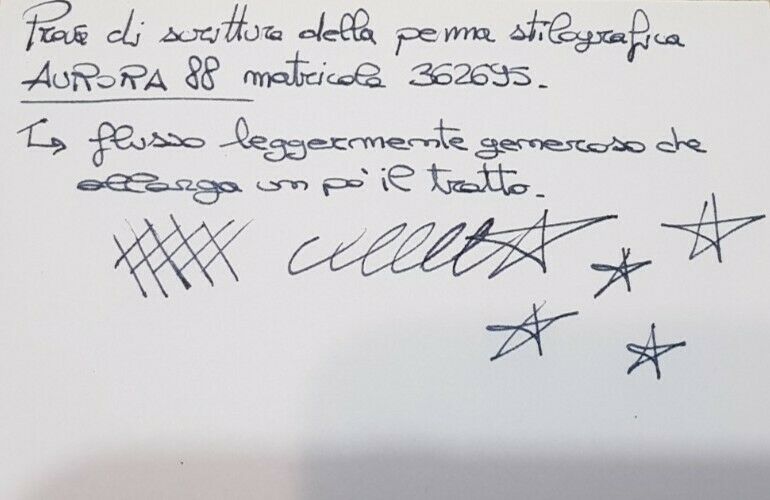 Prova di scrittura della penna stilografica
AURORA 88 matricola 362695.
↳ flusso leggermente generoso che
allarga un pò il tratto.